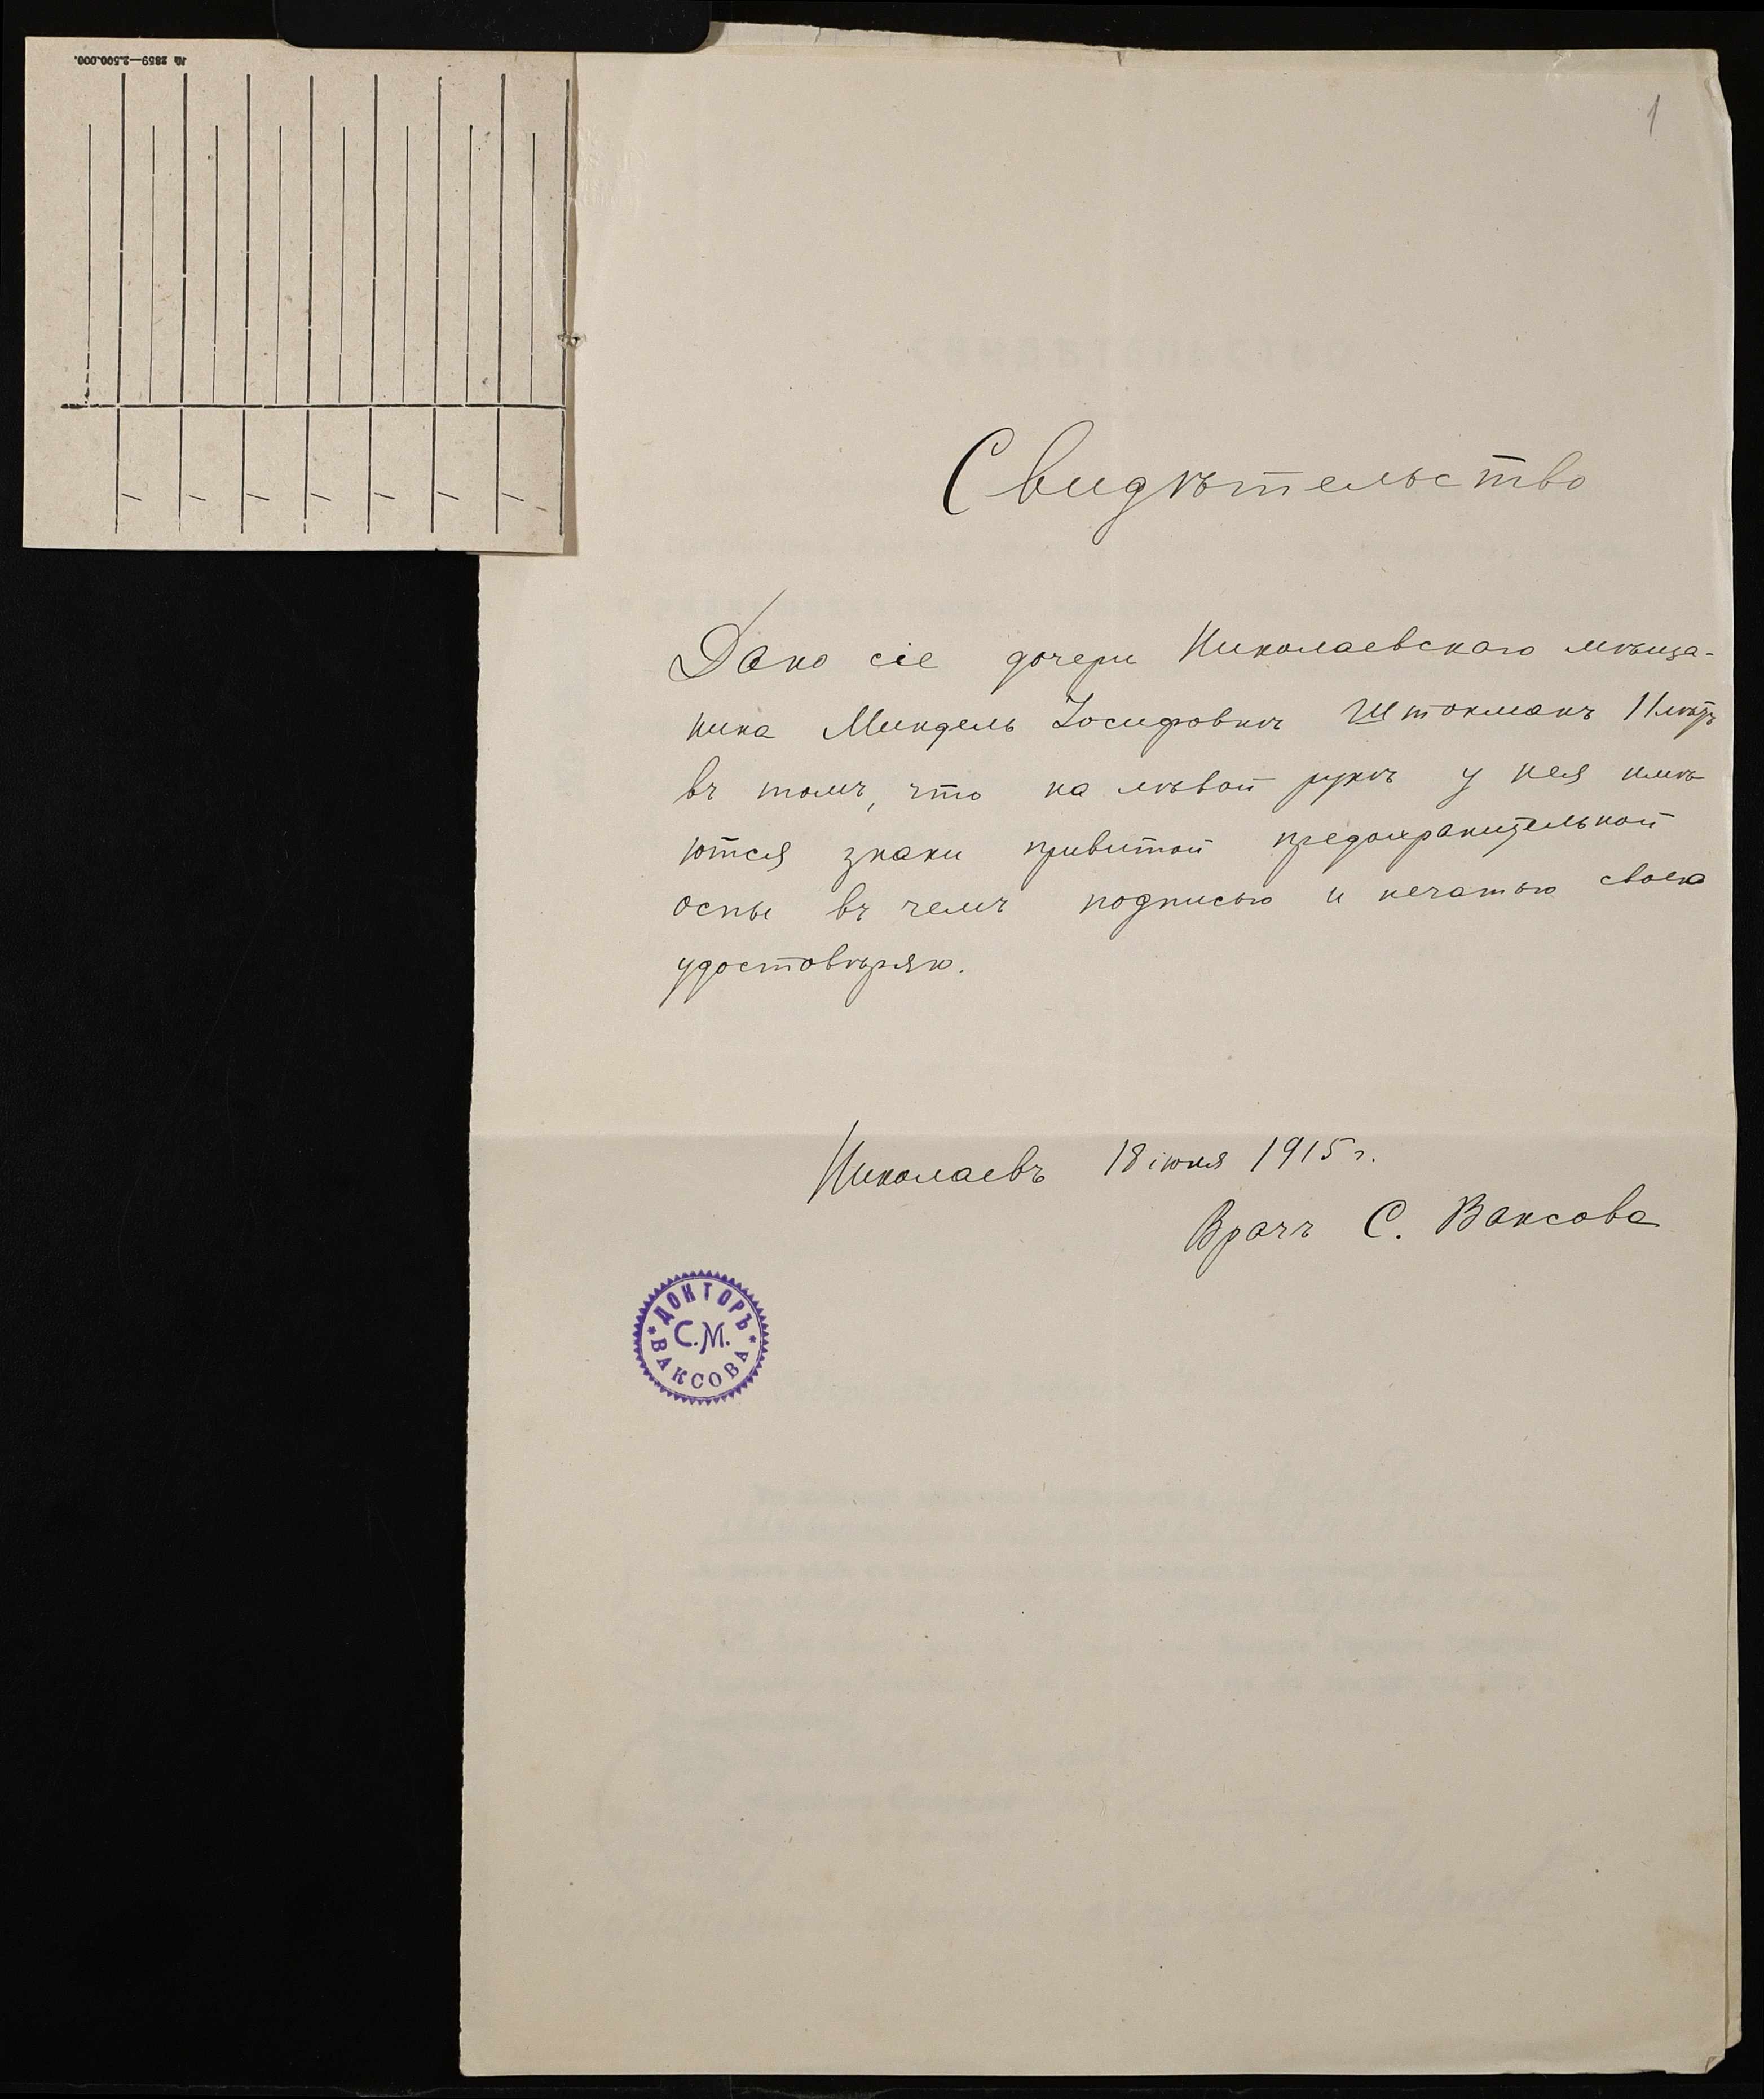 № 2859—2.500.000.
1
Свидѣтельство
Дано сіе дочери Николаевскаго мѣща-
нина Миндель Іосифовнѣ Штокманъ 11 лѣтъ
въ томъ, что на лѣвой рукѣ у нея имѣ
ются знаки привитой предохранительной
оспы въ чемъ подписью и печатью своею
удостовѣряю.
Николаевъ 18 іюня 1915 г.
Врачъ С. Ваксова
ДОКТОРЪ
С.М.
ВАКСОВА